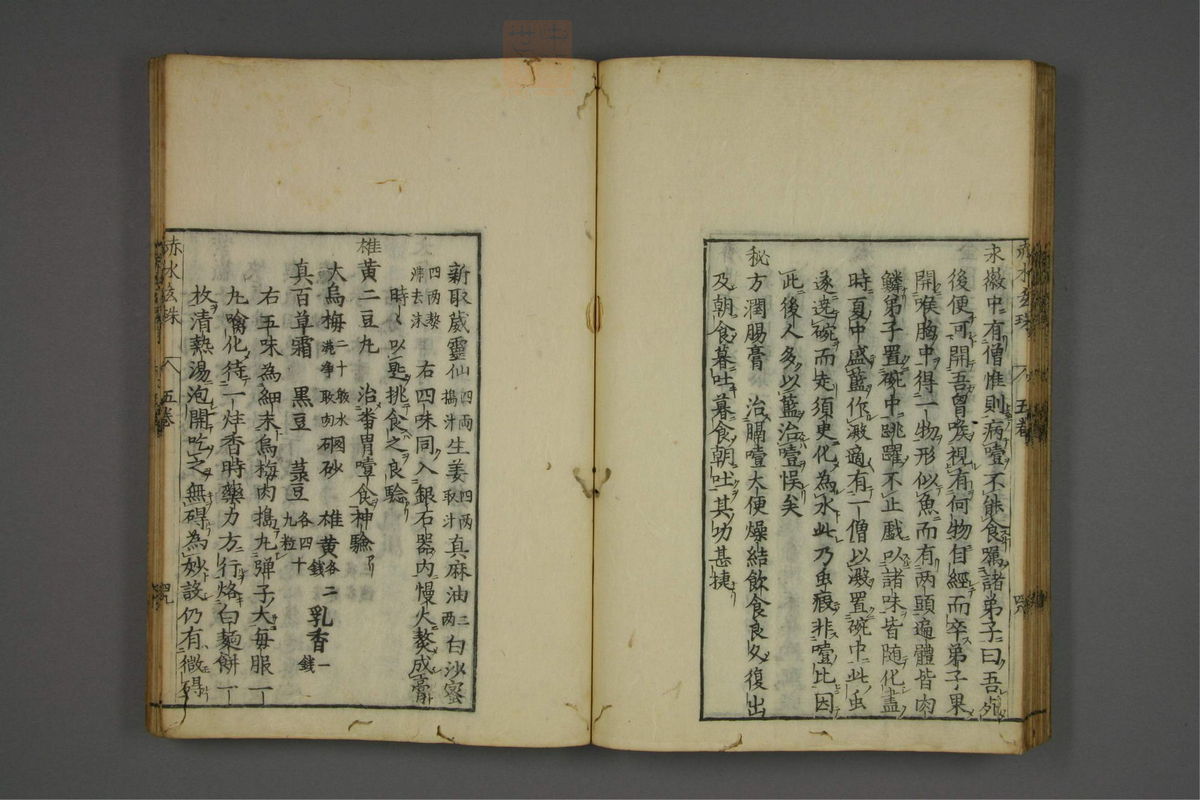 永徽中有僧惟則病噎不能食屬諸弟子曰吾死
後便可開吾曾喉視有何物自經而卒弟子果
開喉胸中得一物形似魚而有两頭遍體皆肉
鱗弟子置碗中跳躍不止戲以諸味皆随化盡
時夏中盛藍作澱適有一僧以澱置碗中此虫
遂遶碗而走須史化為水此乃虫瘕非噎比因
此後人多以藍治噎悮矣
秘方潤腸膏　治膈噎大便燥結飲食良久復出
及朝食暮吐暮食朝吐其功甚捷
赤水玄珠　五卷
新取葳靈仙四两搗汁生姜四两取汁真麻油二两白沙蜜
四两熬沸去沫　右四味同入銀石器内慢火熬成膏
時々以匙挑食之良驗
雄黄二豆丸　治番胃噎食神驗
大烏梅二十教水洗净取肉硇砂　雄黄各二錢　乳香一錢
真百草霜　黒豆　菉豆各四十九粒
右五味為細末烏梅肉搗丸彈子大毎服一
丸噙化待一炷香時藥力方行烙白麺餅一
枚清熱湯泡開吃之無碍為妙設仍有微碍
赤水玄珠　五卷